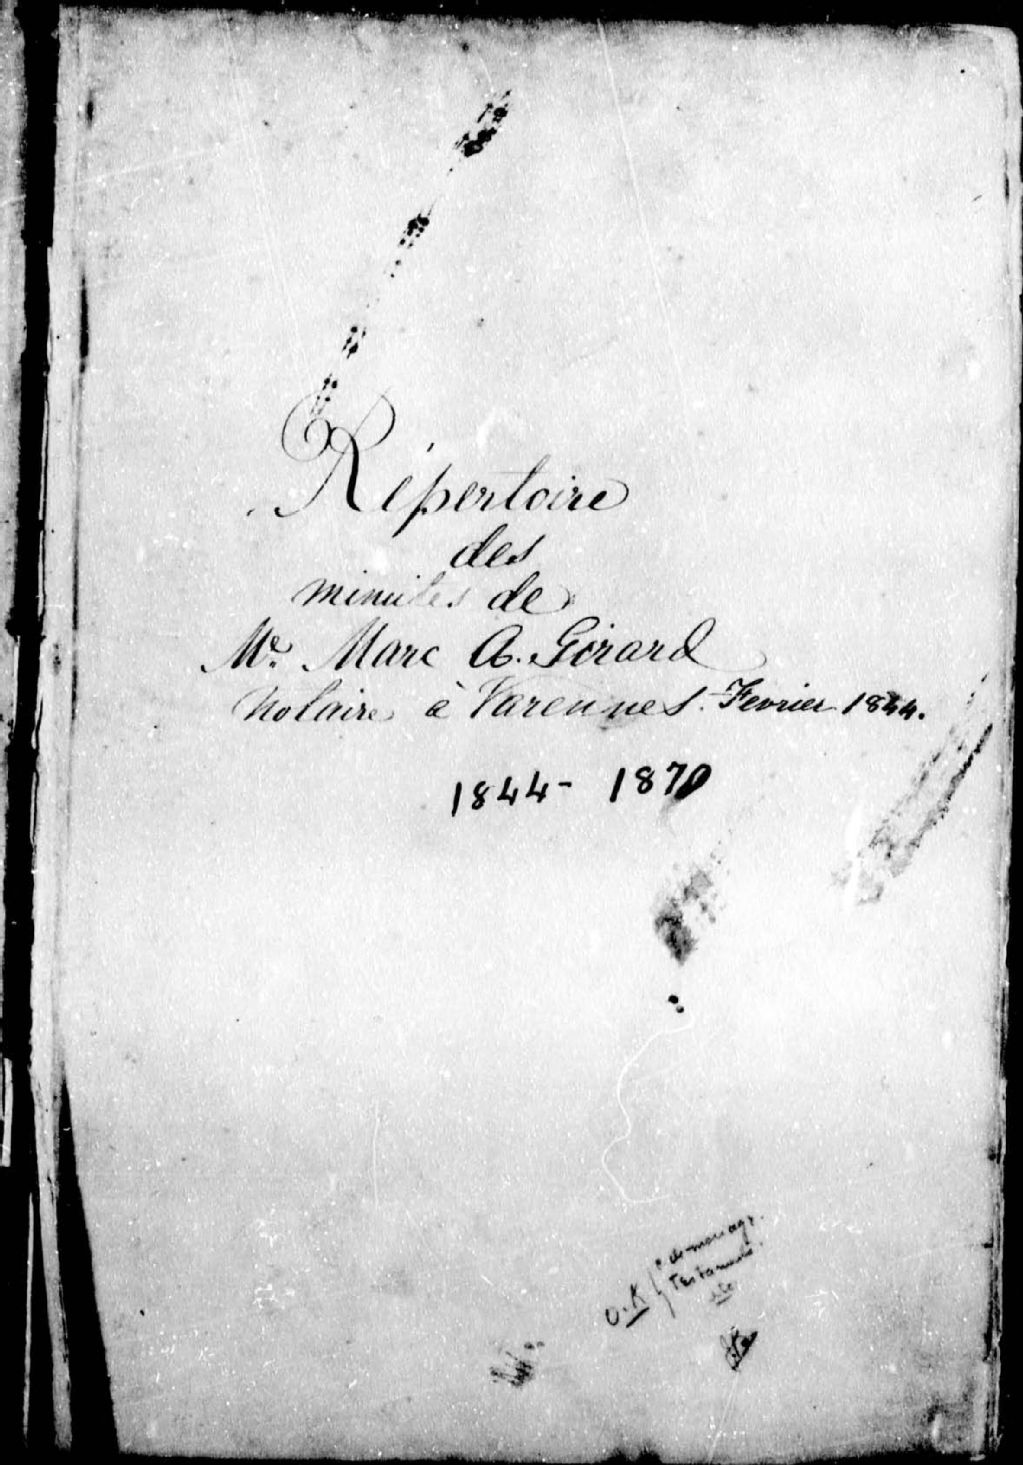 Répertoire
des
minutes de
Me. Marc A. Girard
Notaire à Varennes. Fevrier 1844.
1844 - 1870
de mariage.
O.K Testaments